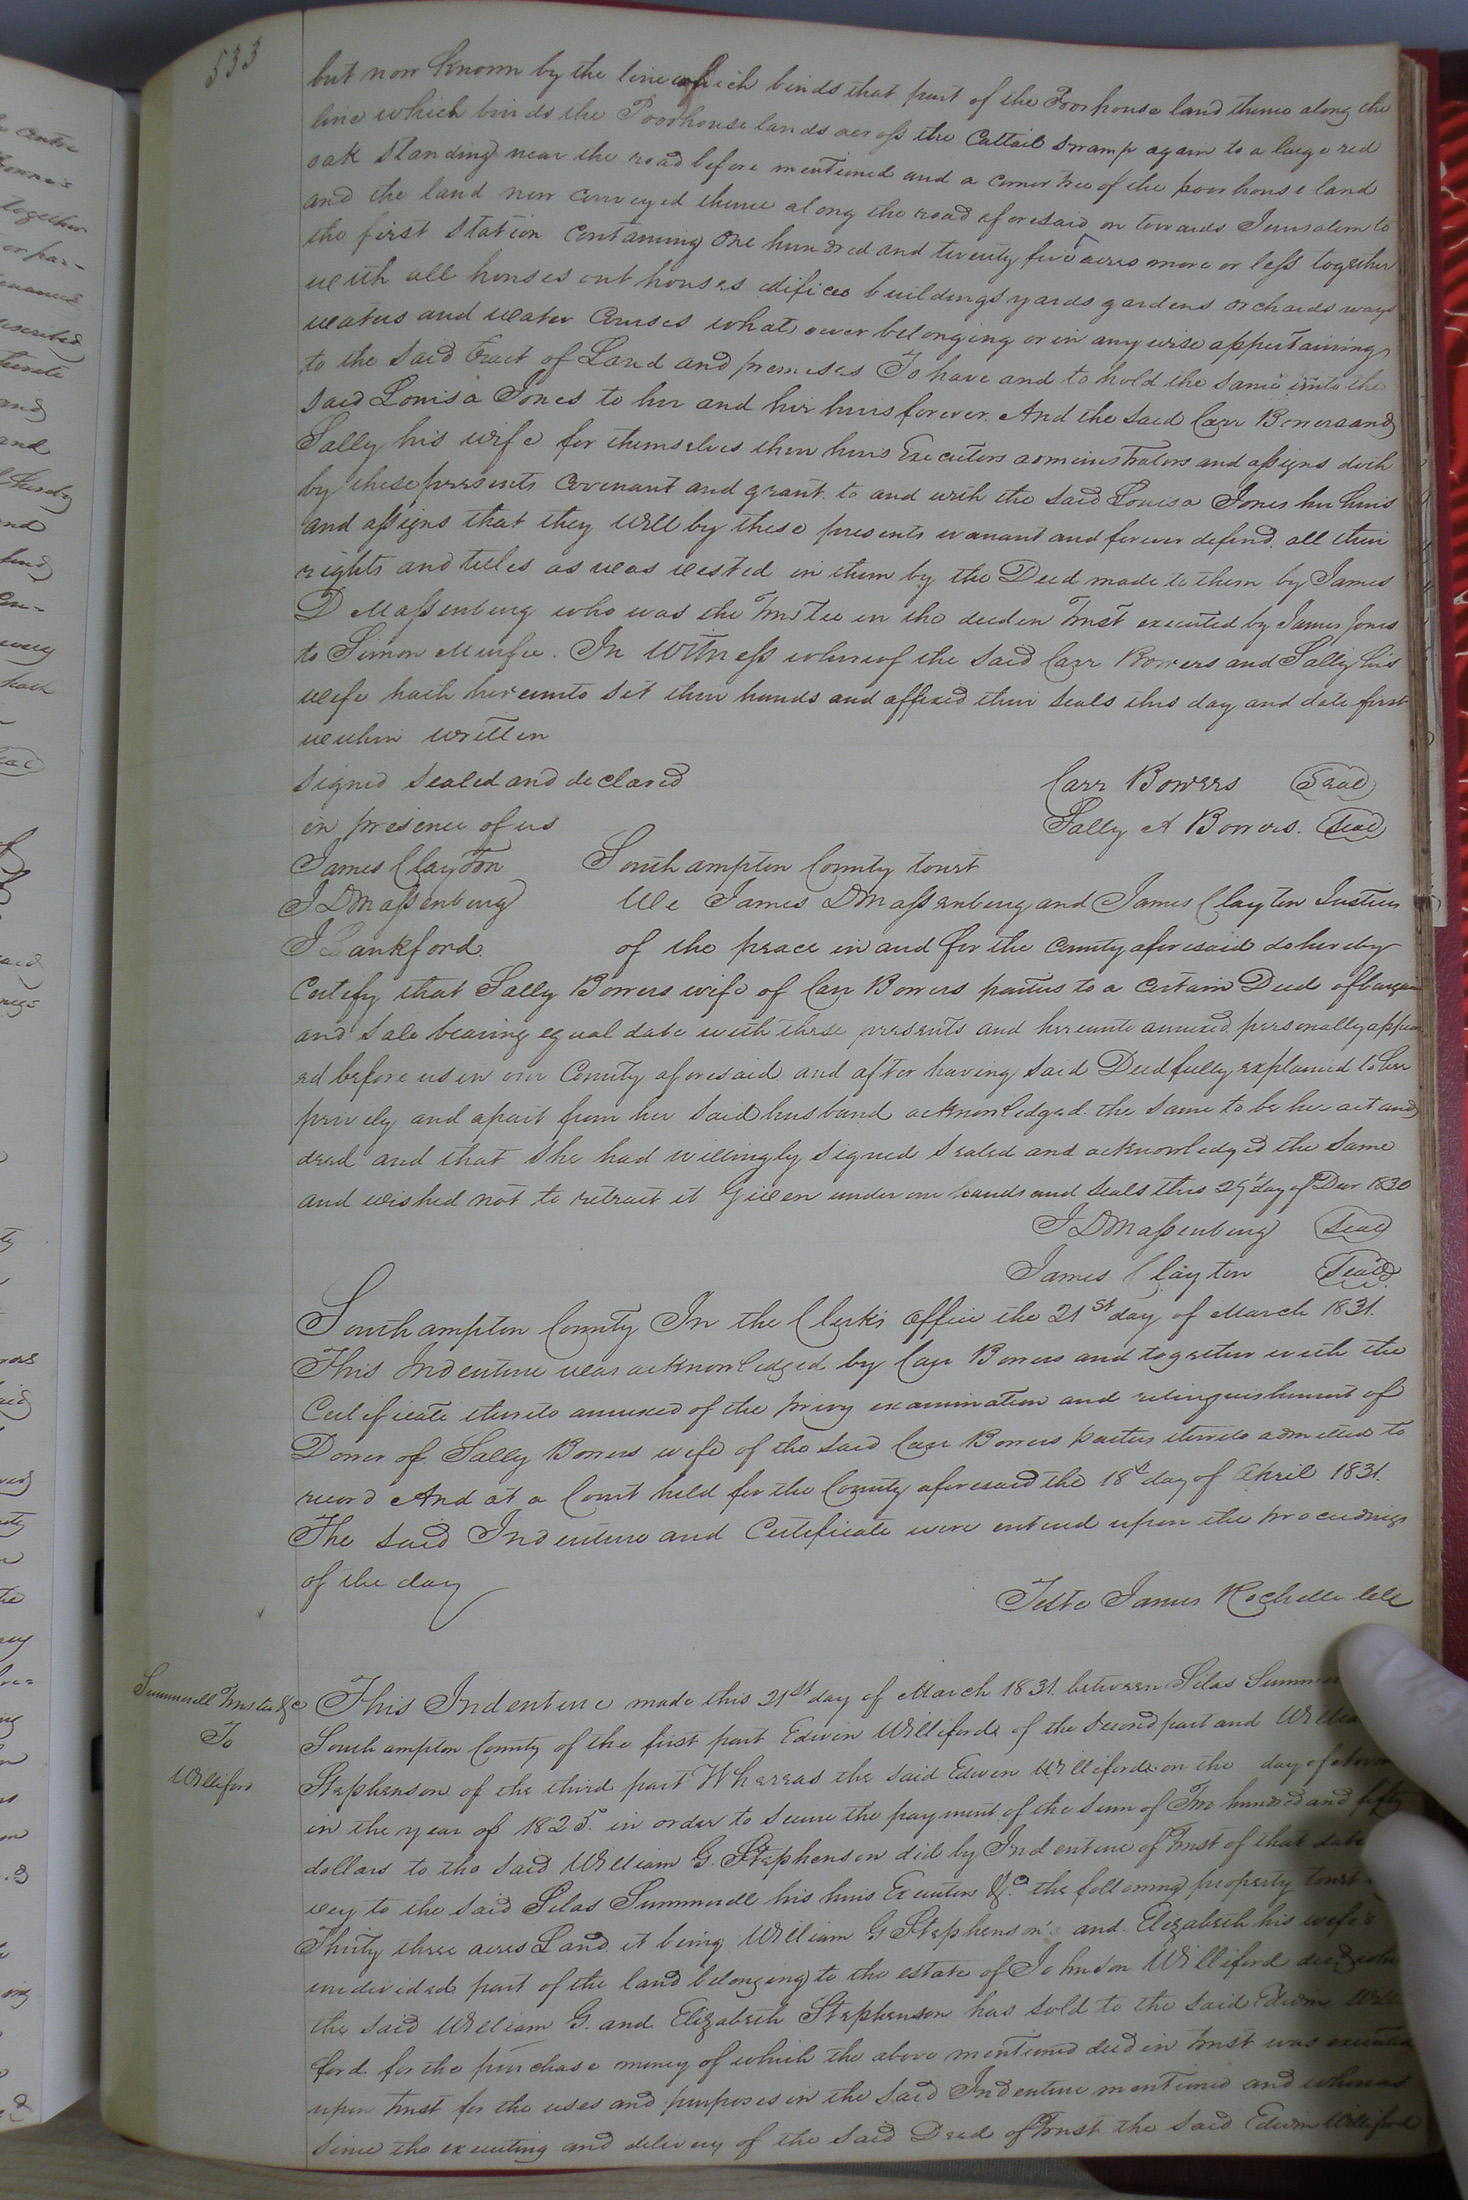 533
but now known by the line which binds that part of the Poorhouse land thence along the
line which binds the Poorhouse lands across the Cattail swamp again to a large red
oak standing near the road before mentioned and a corner tree of the poorhouse land
and the land now conveyed thence along the road aforesaid on towards Jerusalem to
the first station containing One hundred and twenty five acres more or less together
with all houses out houses edifices buildings yards gardens orchards ways
waters and water courses whatsoever belonging or in any wise appertaining
to the said Tract of Land and premises To have and to hold the same unto the
said Louisa Jones to her and her heirs forever. And the said Carr Bowers and
Sally his wife for themselves their heirs Executors administrators and assigns doth
by these presents Covenant and grant to and with the said Louisa Jones her heirs
and assigns that they will by these presents warrant and forever defend all their
rights and titles as was vested in them by the Deed made to them by James
D Massenburg who was the Trustee in the deed in Trust executed by James Jones
to Simon Murfee. In Witness whereof the said Carr Bowers and Sally his
wife hath hereunto set their hands and affixed their seals this day and date first
within written
signed sealed and declared Carr Bowers Seal
in presence of us Sally A Bowers. Seal
James Clayton Southampton County towit
J D Massenburg We James D Massenburg and James Clayton Justices
J Lankford. of the peace in and for the County aforesaid do hereby
Certify that Sally Bowers wife of Carr Bowers parties to a certain Deed of bargain
and sale bearing equal date with these presents and hereunto annexed personally appear
ed before us in our County aforesaid and after having said Deed fully explained to her
privily and apart from her said husband acknowledged the same to be her act and
deed and that she had willingly signed sealed and acknowledged the same
and wished not to retract it Given under our hands and seals this 29 day of Decr 1830
J D Massenburg Seal
James Clayton Seal
Southampton County In the Clerks Office the 21st day of March 1831.
This Indenture was acknowledged by Carr Bowers and together with the
Certificate thereto annexed of the privy examination and relinquishment of
Dower of Sally Bowers wife of the said Carr Bowers parties thereto admitted to
record And at a Court held for the County aforesaid the 18th day of April 1831.
The said Indenture and Certificate were entered upon the proceedings
of the day
Teste James Rochelle
Summerell Trustee &c This Indenture made this 21st day of March 1831. between Silas
To Southampton County of the first part Edwin Williford of the second part and
Williford Stephenson of the third part Whereas the said Edwin Williford on the day of
in the year of 1825. in order to secure the payment of the sum of Two hundred and fifty
dollars to the said William G. Stephenson did by Indenture of Trust of that date
vey to the said Silas Summerell his heirs Executors &c. the following property towit
Thirty three acres Land it being William G Stephenson's and Elizabeth his wife's
undivided part of the land belonging to the estate of Johnson Williford decd
the said William G. and Elizabeth Stephenson has sold to the said Edwin Willi
ford. for the purchase money of which the above mentioned deed in trust was executed
upon trust for the uses and purposes in the said Indenture mentioned and whereas
since the executing and delivery of the said Deed of Trust the said Edwin Williford